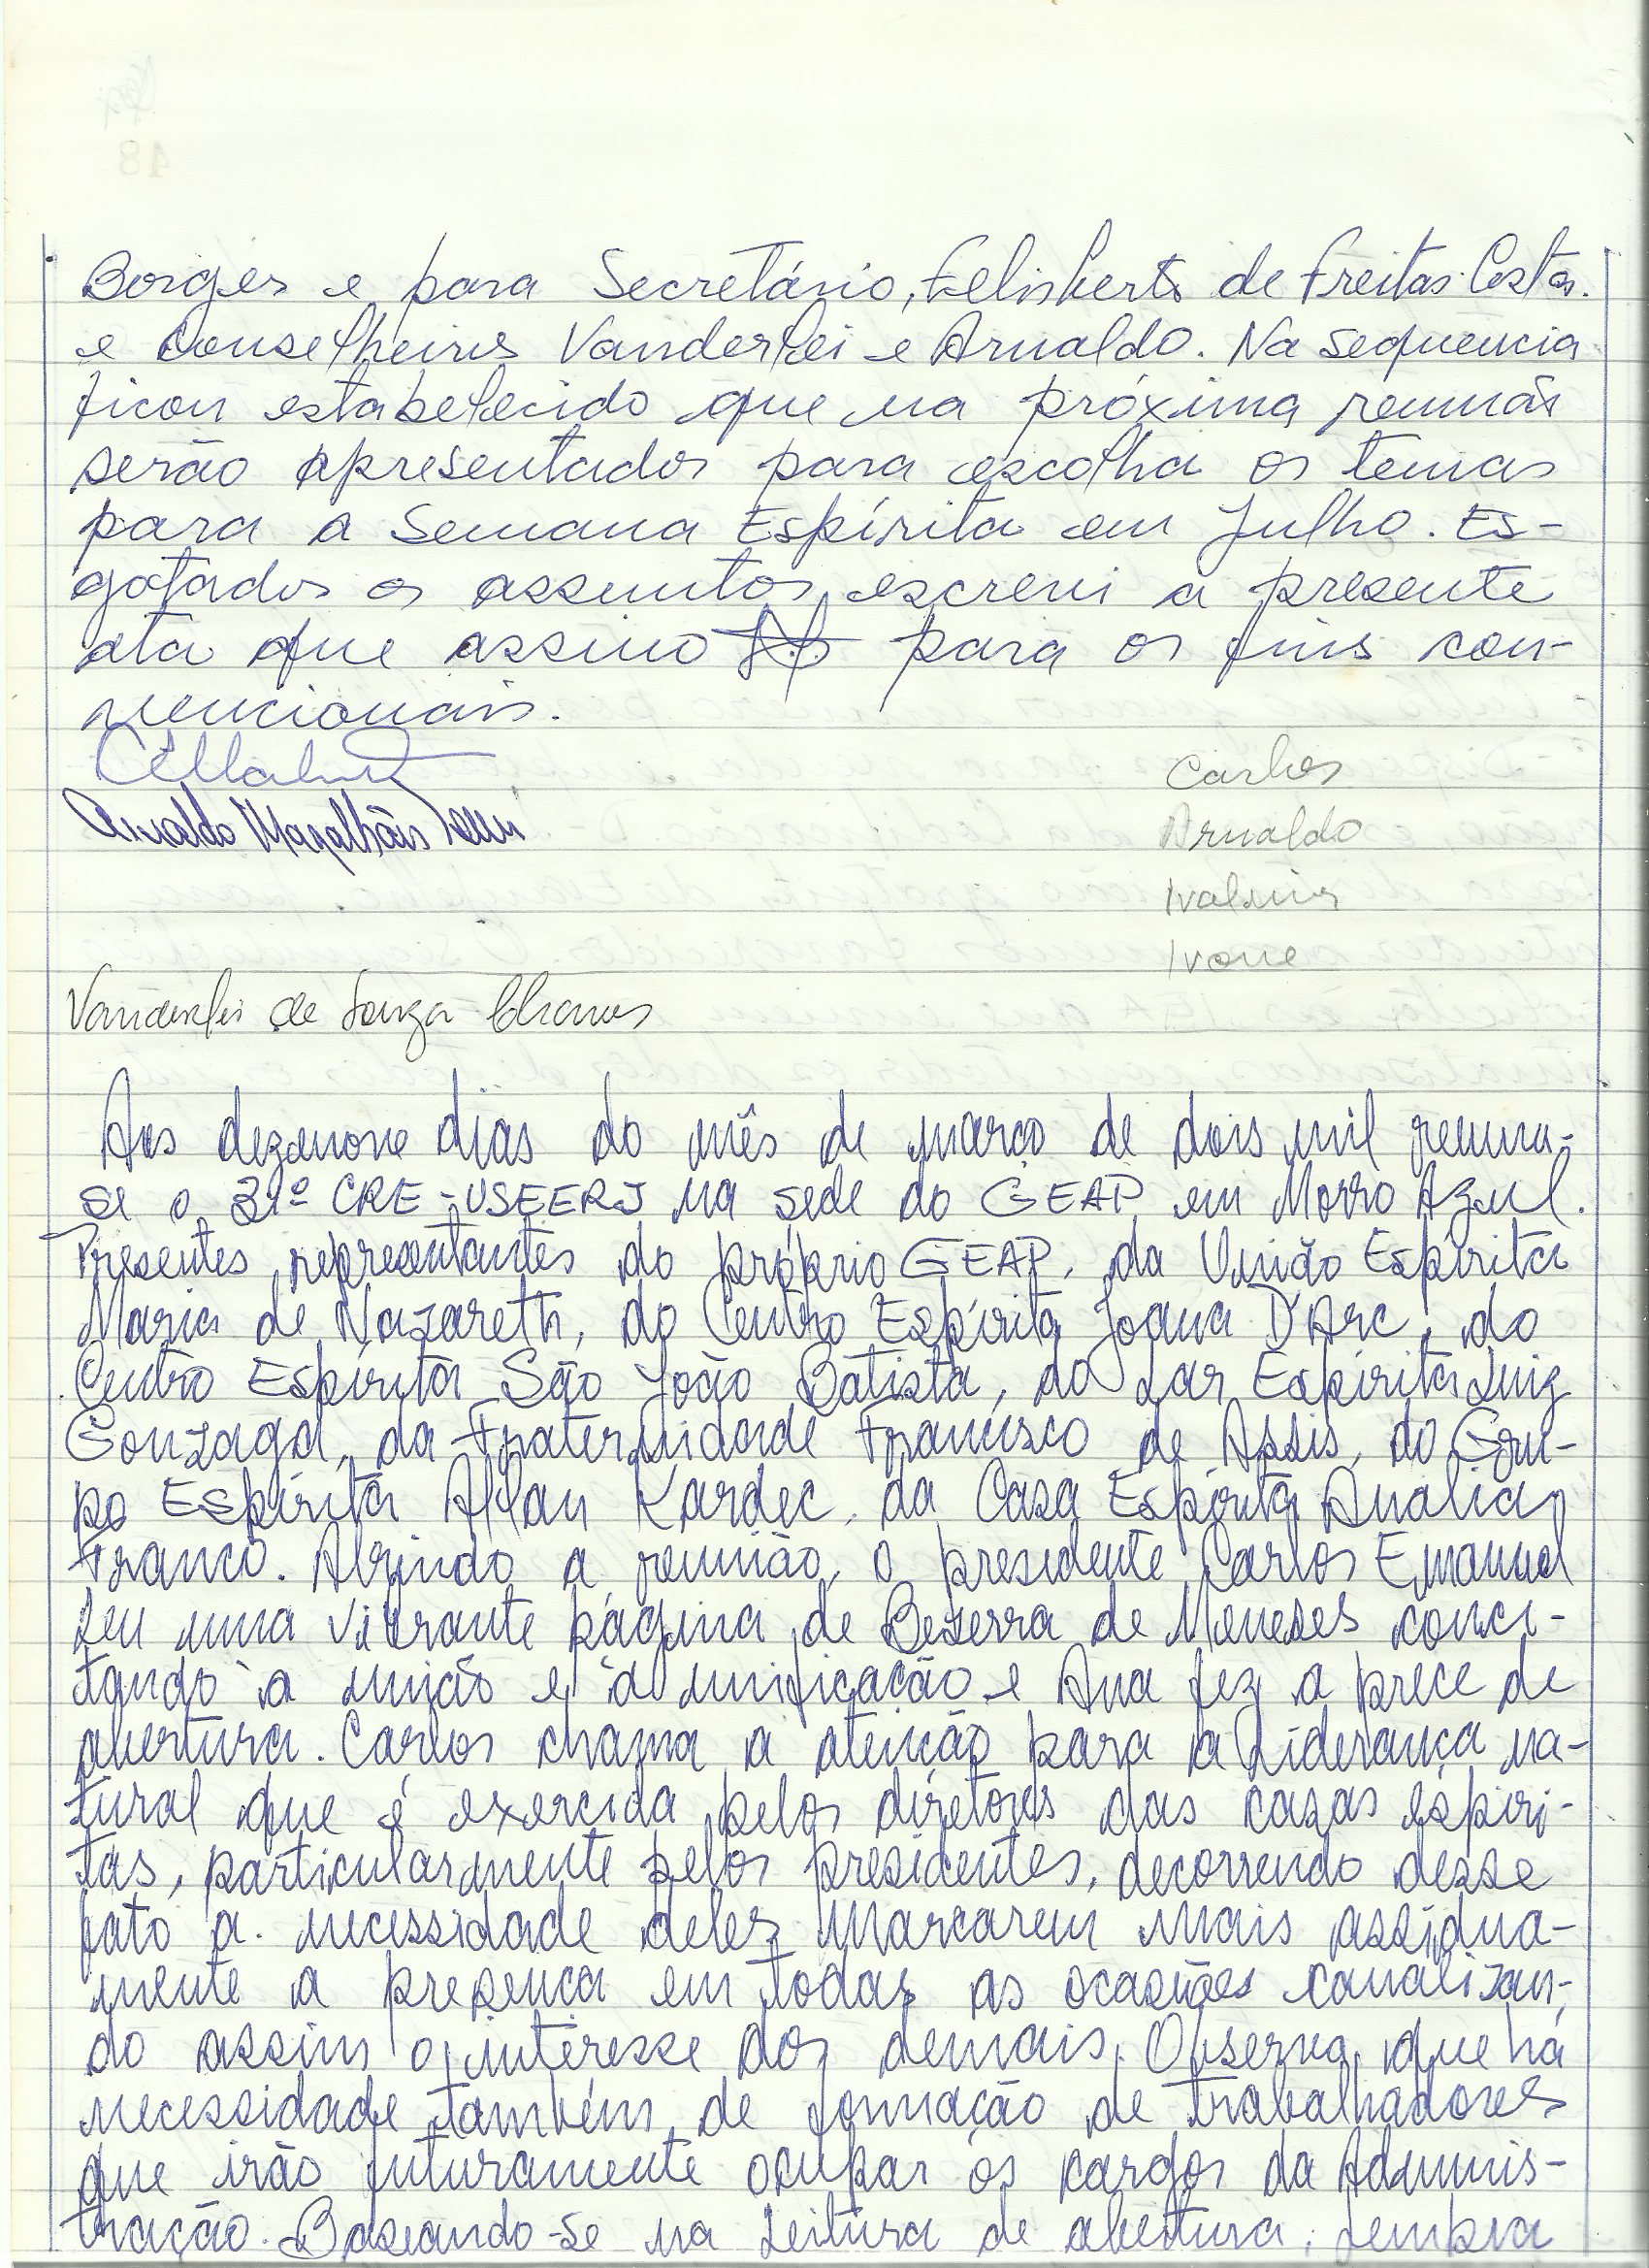 Borges e para Secretário, Felisberto de Freitas Costa.
e Conselheiros Vanderlei e Arnaldo. Na sequencia
ficou estabelecido que na próxima reunião
serão apresentados para escolha os temas
para a Semana Espírita em Julho. Es-
gotados os assuntos escrevi a presente
ata que assino para os fins con-
vencionais.
Carlos
Arnaldo Magalhães
Arnaldo
Ivalmir
Ivone
Vanderlei de Souza Chaves
Aos dezenove dias do mês de março de dois mil reuniu-
se o 21º CRE-USEERJ na sede do GEAP em Morro Azul.
Presentes representantes do próprio GEAP, da União Espírita
Maria de Nazareth, do Centro Espírita Joana D'Arc, do
Centro Espírita São João Batista, do Lar Espírita Luiz
Gonzaga, da Fraternidade Francisco de Assis, do Gru-
po Espírita Allan Kardec, da Casa Espírita Analia
Franco. Abrindo a reunião, o presidente Carlos Emanuel
leu uma vibrante página de Bezerra de Meneses conci-
tando à união e à unificação e Ana fez a prece de
abertura. Carlos chama a atenção para a liderança na-
tural que é exercida pelos diretores das casas espíri-
tas, particularmente pelos presidentes, decorrendo desse
fato a necessidade deles marcarem mais assidua-
mente a presença em todas as ocasiões canalizan-
do assim o interesse dos demais. Observa que há
necessidade também de formação de trabalhadores
que irão futuramente ocupar os cargos da Adminis-
tração. Baseando-se na leitura de abertura, lembra